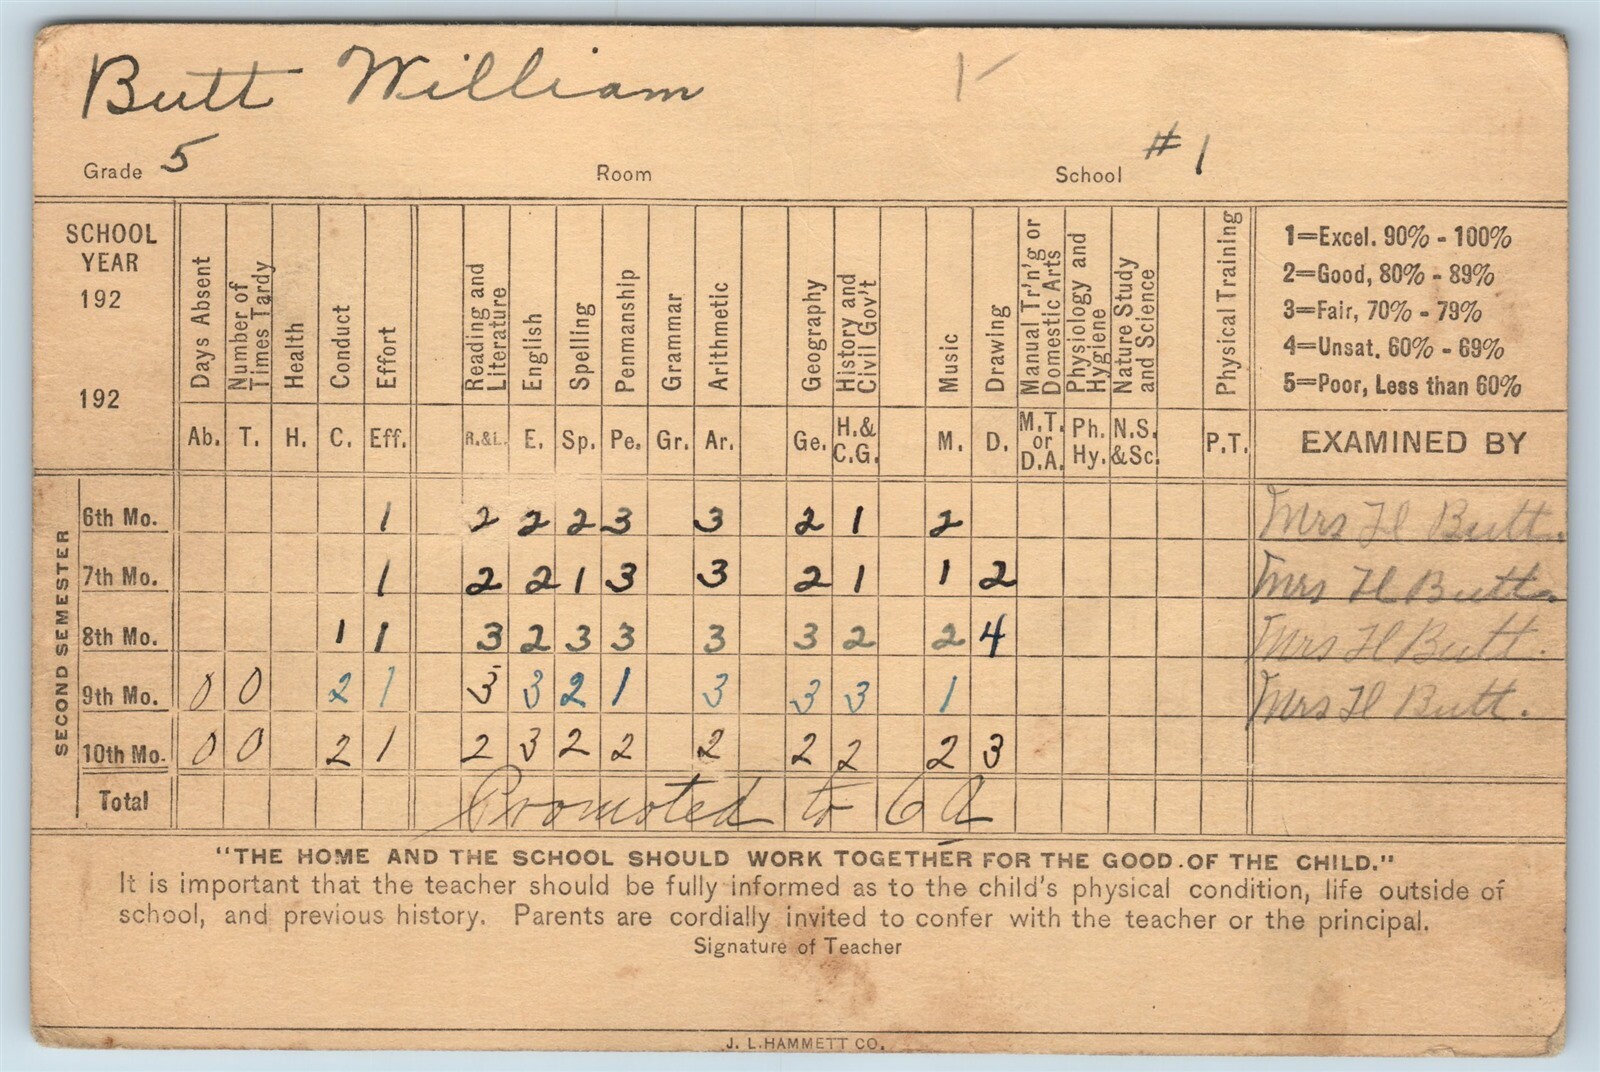 Butt William
Grade 5 Room School #1
SCHOOL YEAR 192 192
Days Absent
Number of Times Tardy
Health
Conduct
Effort
Reading and Literature
English
Spelling
Penmanship
Grammar
Arithmetic
Geography
History and Civil Gov't
Music
Drawing
Manual Tr'n'g or Domestic Arts
Physiology and Hygiene
Nature Study and Science
Physical Training
1=Excel. 90% - 100%
2=Good, 80% - 89%
3=Fair, 70% - 79%
4=Unsat. 60% - 69%
5=Poor, Less than 60%
Ab. T. H. C. Eff. R.&L. E. Sp. Pe. Gr. Ar. Ge. H.& C.G. M. D. M.T. or D.A. Ph. Hy. N.S. &Sc. P.T. EXAMINED BY
SECOND SEMESTER
6th Mo. 1 2 2 2 3 3 2 1 2 Mrs H Butt.
7th Mo. 1 2 2 1 3 3 2 1 1 2 Mrs H Butt.
8th Mo. 1 1 3 2 3 3 3 3 2 2 4 Mrs H Butt.
9th Mo. 0 0 2 1 3 3 2 1 3 3 3 1 Mrs H Butt.
10th Mo. 0 0 2 1 2 3 2 2 2 2 2 2 3
Total Promoted to 6A
"THE HOME AND THE SCHOOL SHOULD WORK TOGETHER FOR THE GOOD OF THE CHILD."
It is important that the teacher should be fully informed as to the child's physical condition, life outside of
school, and previous history. Parents are cordially invited to confer with the teacher or the principal.
Signature of Teacher
J. L. HAMMETT CO.